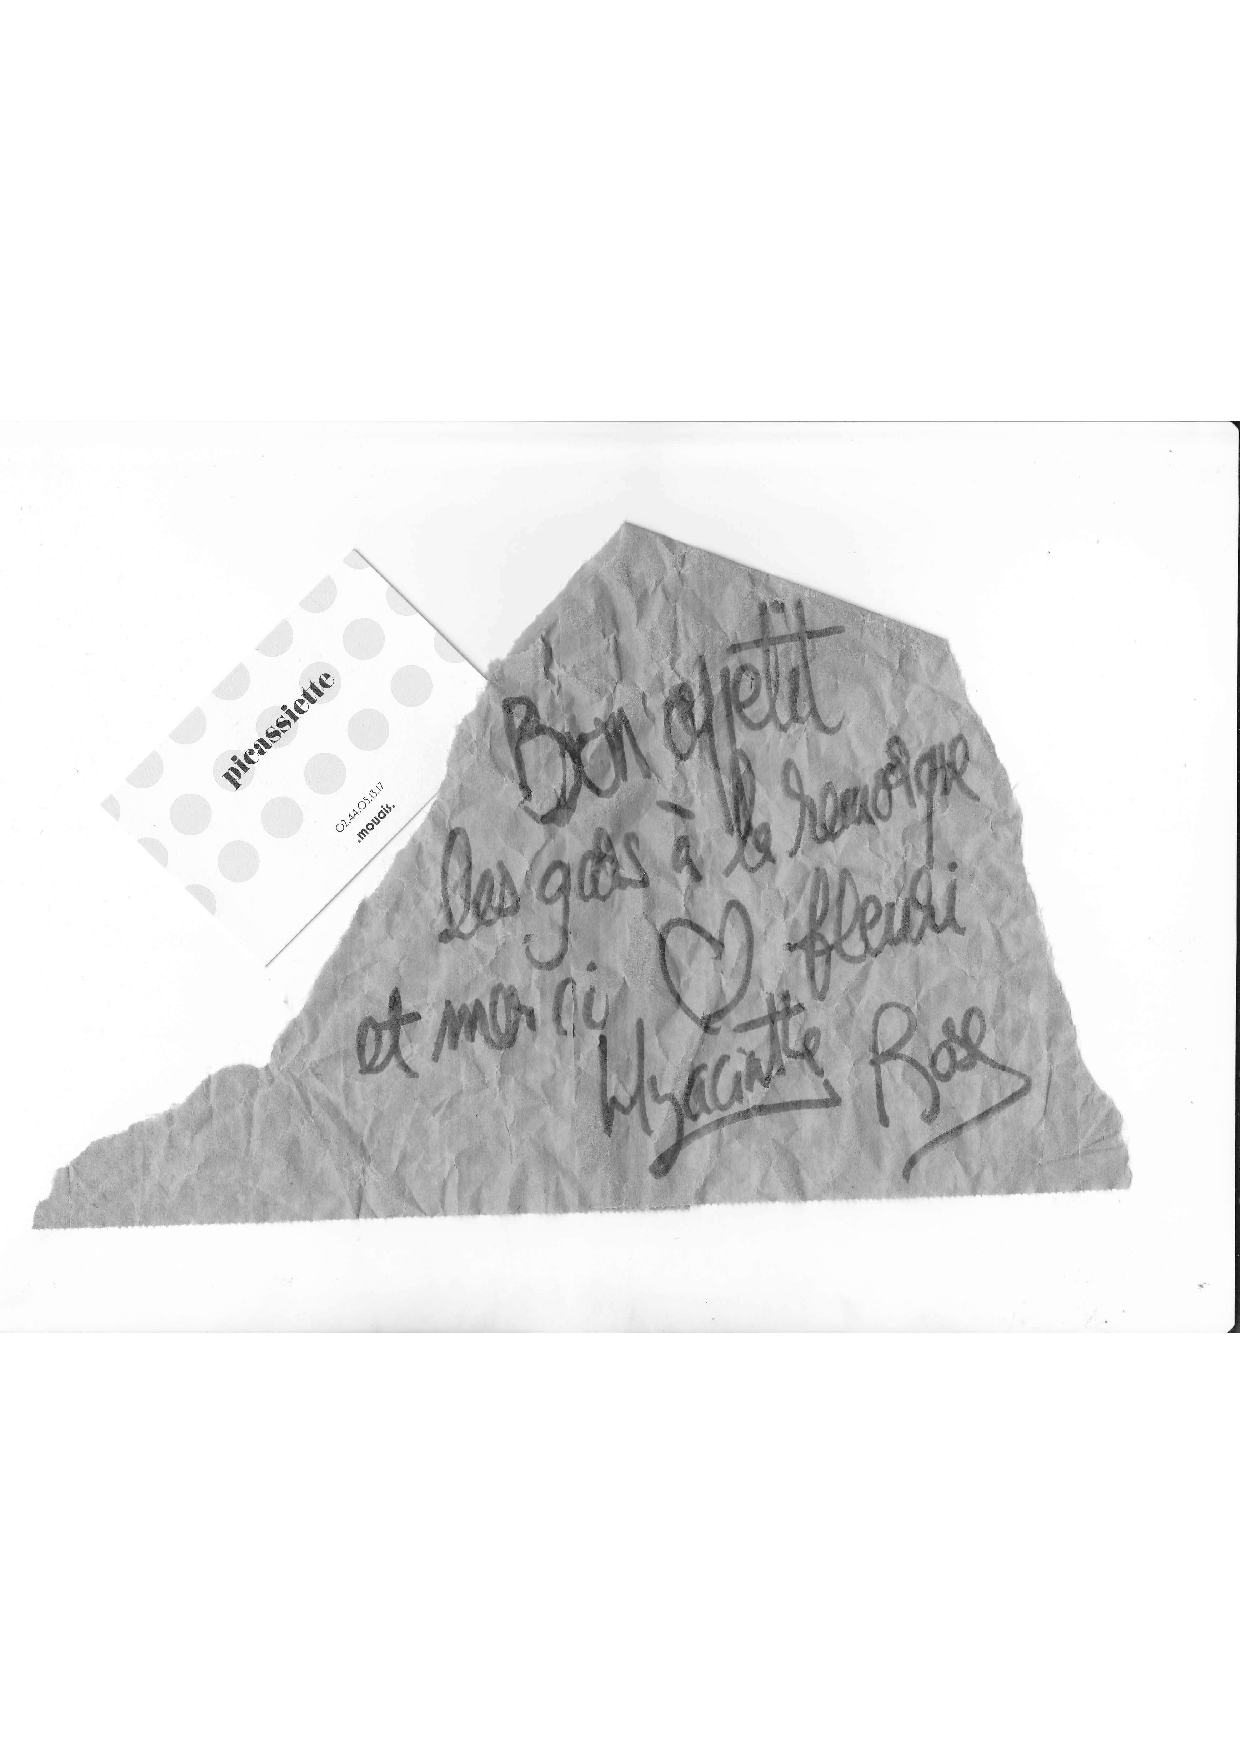 picassiette
02.44.05.13.17
.mouais.
Bon appétit
les gars à la remorque
et merci ♡ fleuri
Hyacinthe Rose